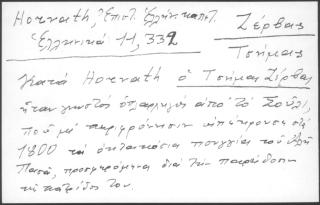 Horvath, Ἐπιστ. Ἑλλην. καπετ.
Ἑλληνικά 11, 332
Ζέρβας
Τσήμας
Κατά Horvath ὁ Τσήμας Ζέρβας
ἦταν γνωστός ὁπλαρχηγός ἀπό τό Σούλι,
πού μέ περιφρόνησιν ἀπήντησεν στά
1800 τά ὀκτακόσια πουγγία τοῦ Ἀλῆ
Πασᾶ, προσφερόμενα διά τήν παράδοσιν
τῆς πατρίδος του.